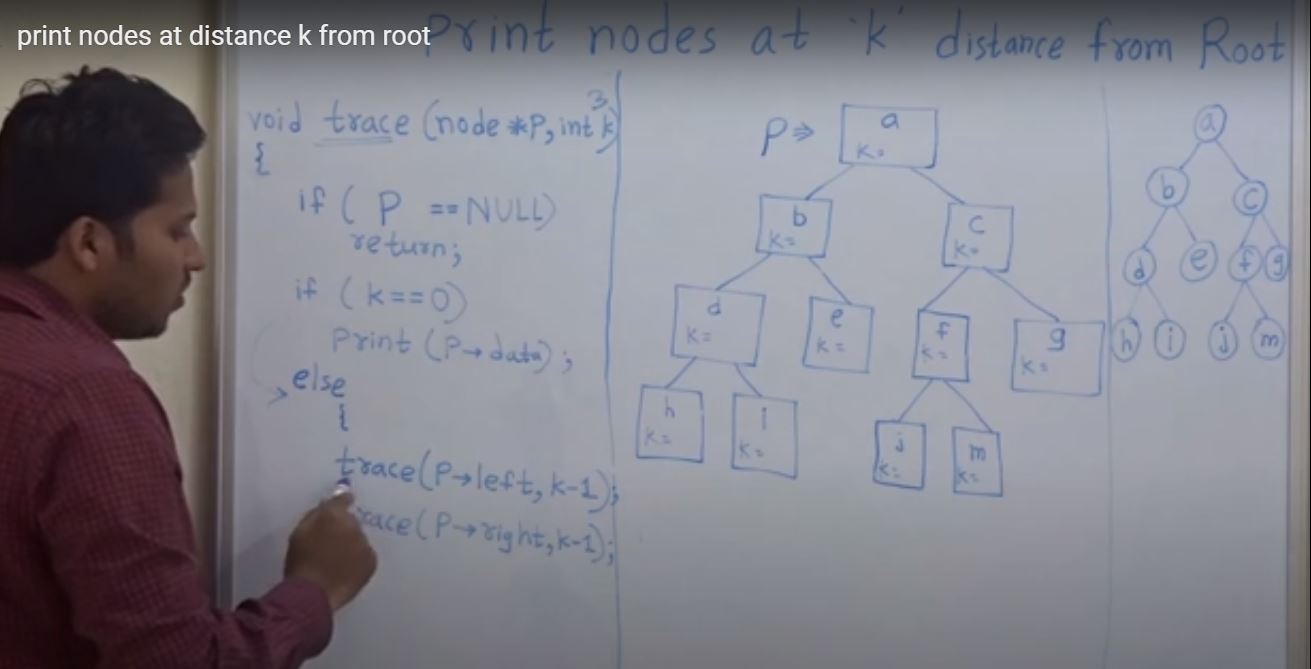 print nodes at distance k from root
Print nodes at 'k' distance from Root
3
void trace (node *P, int k)
{
if ( P == NULL)
return;
if ( k==0)
Print (P→data);
else
{
trace(P→left, k-1);
trace(P→right, k-1);
P⇒
a
k=
b
k=
c
k=
d
k=
e
k=
f
k=
g
k=
h
k=
i
k=
j
k=
m
k=
a
b c
d e f g
h i j m